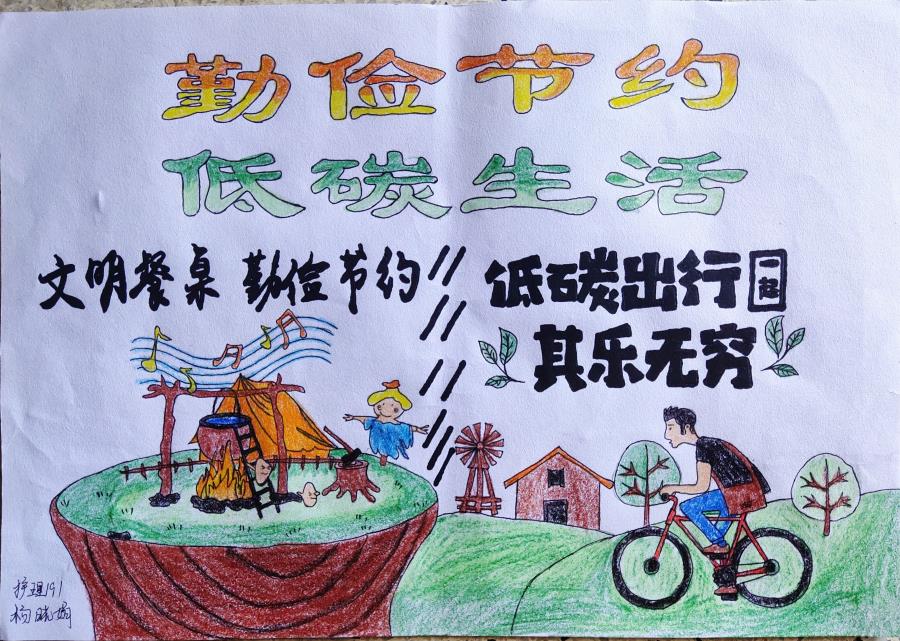 勤俭节约
低碳生活
文明餐桌 勤俭节约
低碳出行一起
其乐无穷
护理191
杨晓娟